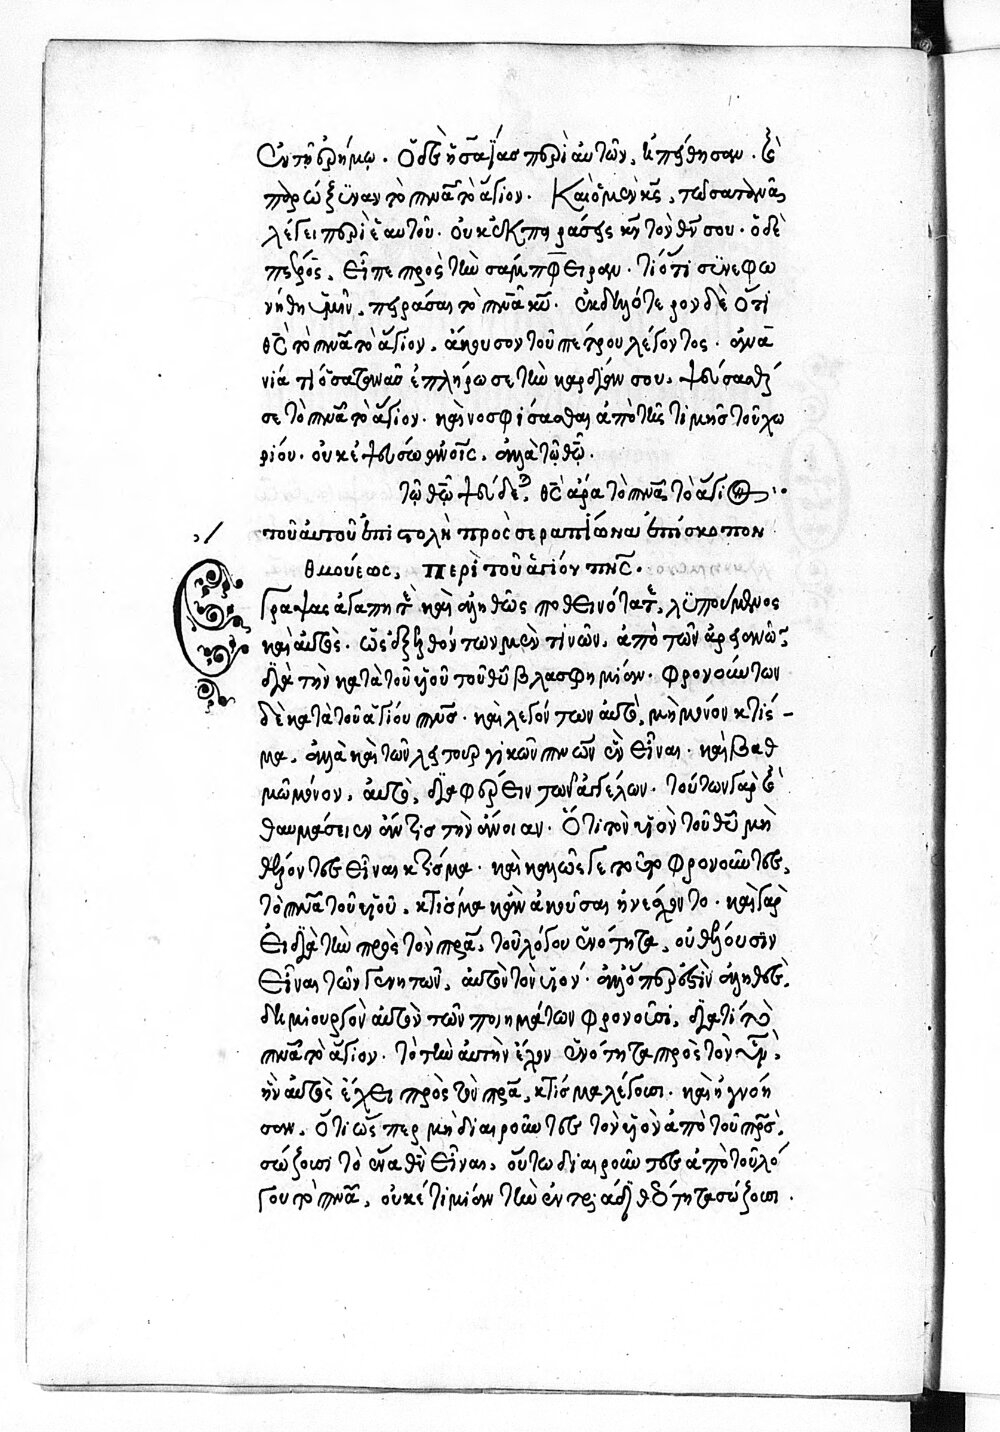 ἐν τῇ ἐρήμῳ. ὁ δὲ ἡσαΐας περὶ αὐτῶν, ἠπείθησαν. καὶ
παρώξυναν τὸ πνα τὸ ἅγιον. Καὶ ὁ μὲν κς, τῷ σατανᾷ
λέγει περὶ ἑαυτοῦ. οὐκ ἐκπειράσεις κν τὸν θν σου. ὁ δὲ
πέτρος, εἶπε πρὸς τὴν σάμπφειραν. τί ὅτι συνεφω
νήθη ὑμῖν, πειράσαι τὸ πνα κυ. ἐκδηλότερον δὲ ὅτι
θς τὸ πνα τὸ ἅγιον, ἄκουσον τοῦ πέτρου λέγοντος. ἀνα
νία τί ὁ σατανᾶς ἐπλήρωσε τὴν καρδίαν σου, ψεύσασθαί
σε τὸ πνα τὸ ἅγιον. καὶ νοσφίσασθαι ἀπὸ τῆς τιμῆς τοῦ χω
ρίου. οὐκ ἐψεύσω ανοις, ἀλλὰ τῷ θω.
τῷ θω ψεύδει, θς ἄρα τὸ πνα τὸ ἅγιον
τοῦ αὐτοῦ ἐπιστολὴ πρὸς σεραπίωνα ἐπίσκοπον
θμούεως, περὶ τοῦ ἁγίου πνς.
Ἔγραψας ἀγαπητὲ καὶ ἀληθῶς ποθεινότατε, λυπούμενος
καὶ αὐτὸς. ὡς ἐξελθόντων μέν τινων, ἀπὸ τῶν ἀρειανῶν,
διὰ τὴν κατὰ τοῦ υἱοῦ τοῦ θυ βλασφημίαν. φρονούντων
δὲ κατὰ τοῦ ἁγίου πνς. καὶ λεγόντων αὐτὸ, μὴ μόνον κτίσ-
μα, ἀλλὰ καὶ τῶν λειτουργικῶν πνων ἓν εἶναι. καὶ βαθ
μῷ μόνον, αὐτὸ, διαφέρειν τῶν ἀγγέλων. τούτων γὰρ καὶ
θαυμάσειεν ἄν τις τὴν ἄνοιαν. ὅτι τὸν υἱὸν τοῦ θυ μὴ
θέλοντες εἶναι κτίσμα. καὶ καλῶς γε τοῦτο φρονοῦντες,
τὸ πνα τοῦ υἱοῦ, κτίσμα κἂν ἀκοῦσαι ἠνείχοντο. καὶ γὰρ
εἰ διὰ τὴν πρὸς τὸν πρα, τοῦ λόγου ἑνότητα, οὐ θέλουσιν
εἶναι τῶν γενητῶν, αὐτὸν τὸν υἱόν. ἀλλ' ὅπερ ἐστὶν ἀληθὲς,
δημιουργὸν αὐτὸν τῶν ποιημάτων φρονοῦσι, διατί τὸ
πνα τὸ ἅγιον. τὸ τὴν αὐτὴν ἔχον ἑνότητα πρὸς τὸν υἱὸν,
ἣν αὐτὸς ἔχει πρὸς τὸν πρα, κτίσμα λέγουσι. καὶ ἠγνόη
σαν, ὅτι ὥσπερ μὴ διαιροῦντες τὸν υἱὸν ἀπὸ τοῦ πρς,
σώζουσι τὸ ἕνα θν εἶναι, οὕτω διαιροῦντες ἀπὸ τοῦ λό
γου τὸ πνα, οὐκέτι μίαν τὴν ἐν τριάδι θεότητα σώζουσι.